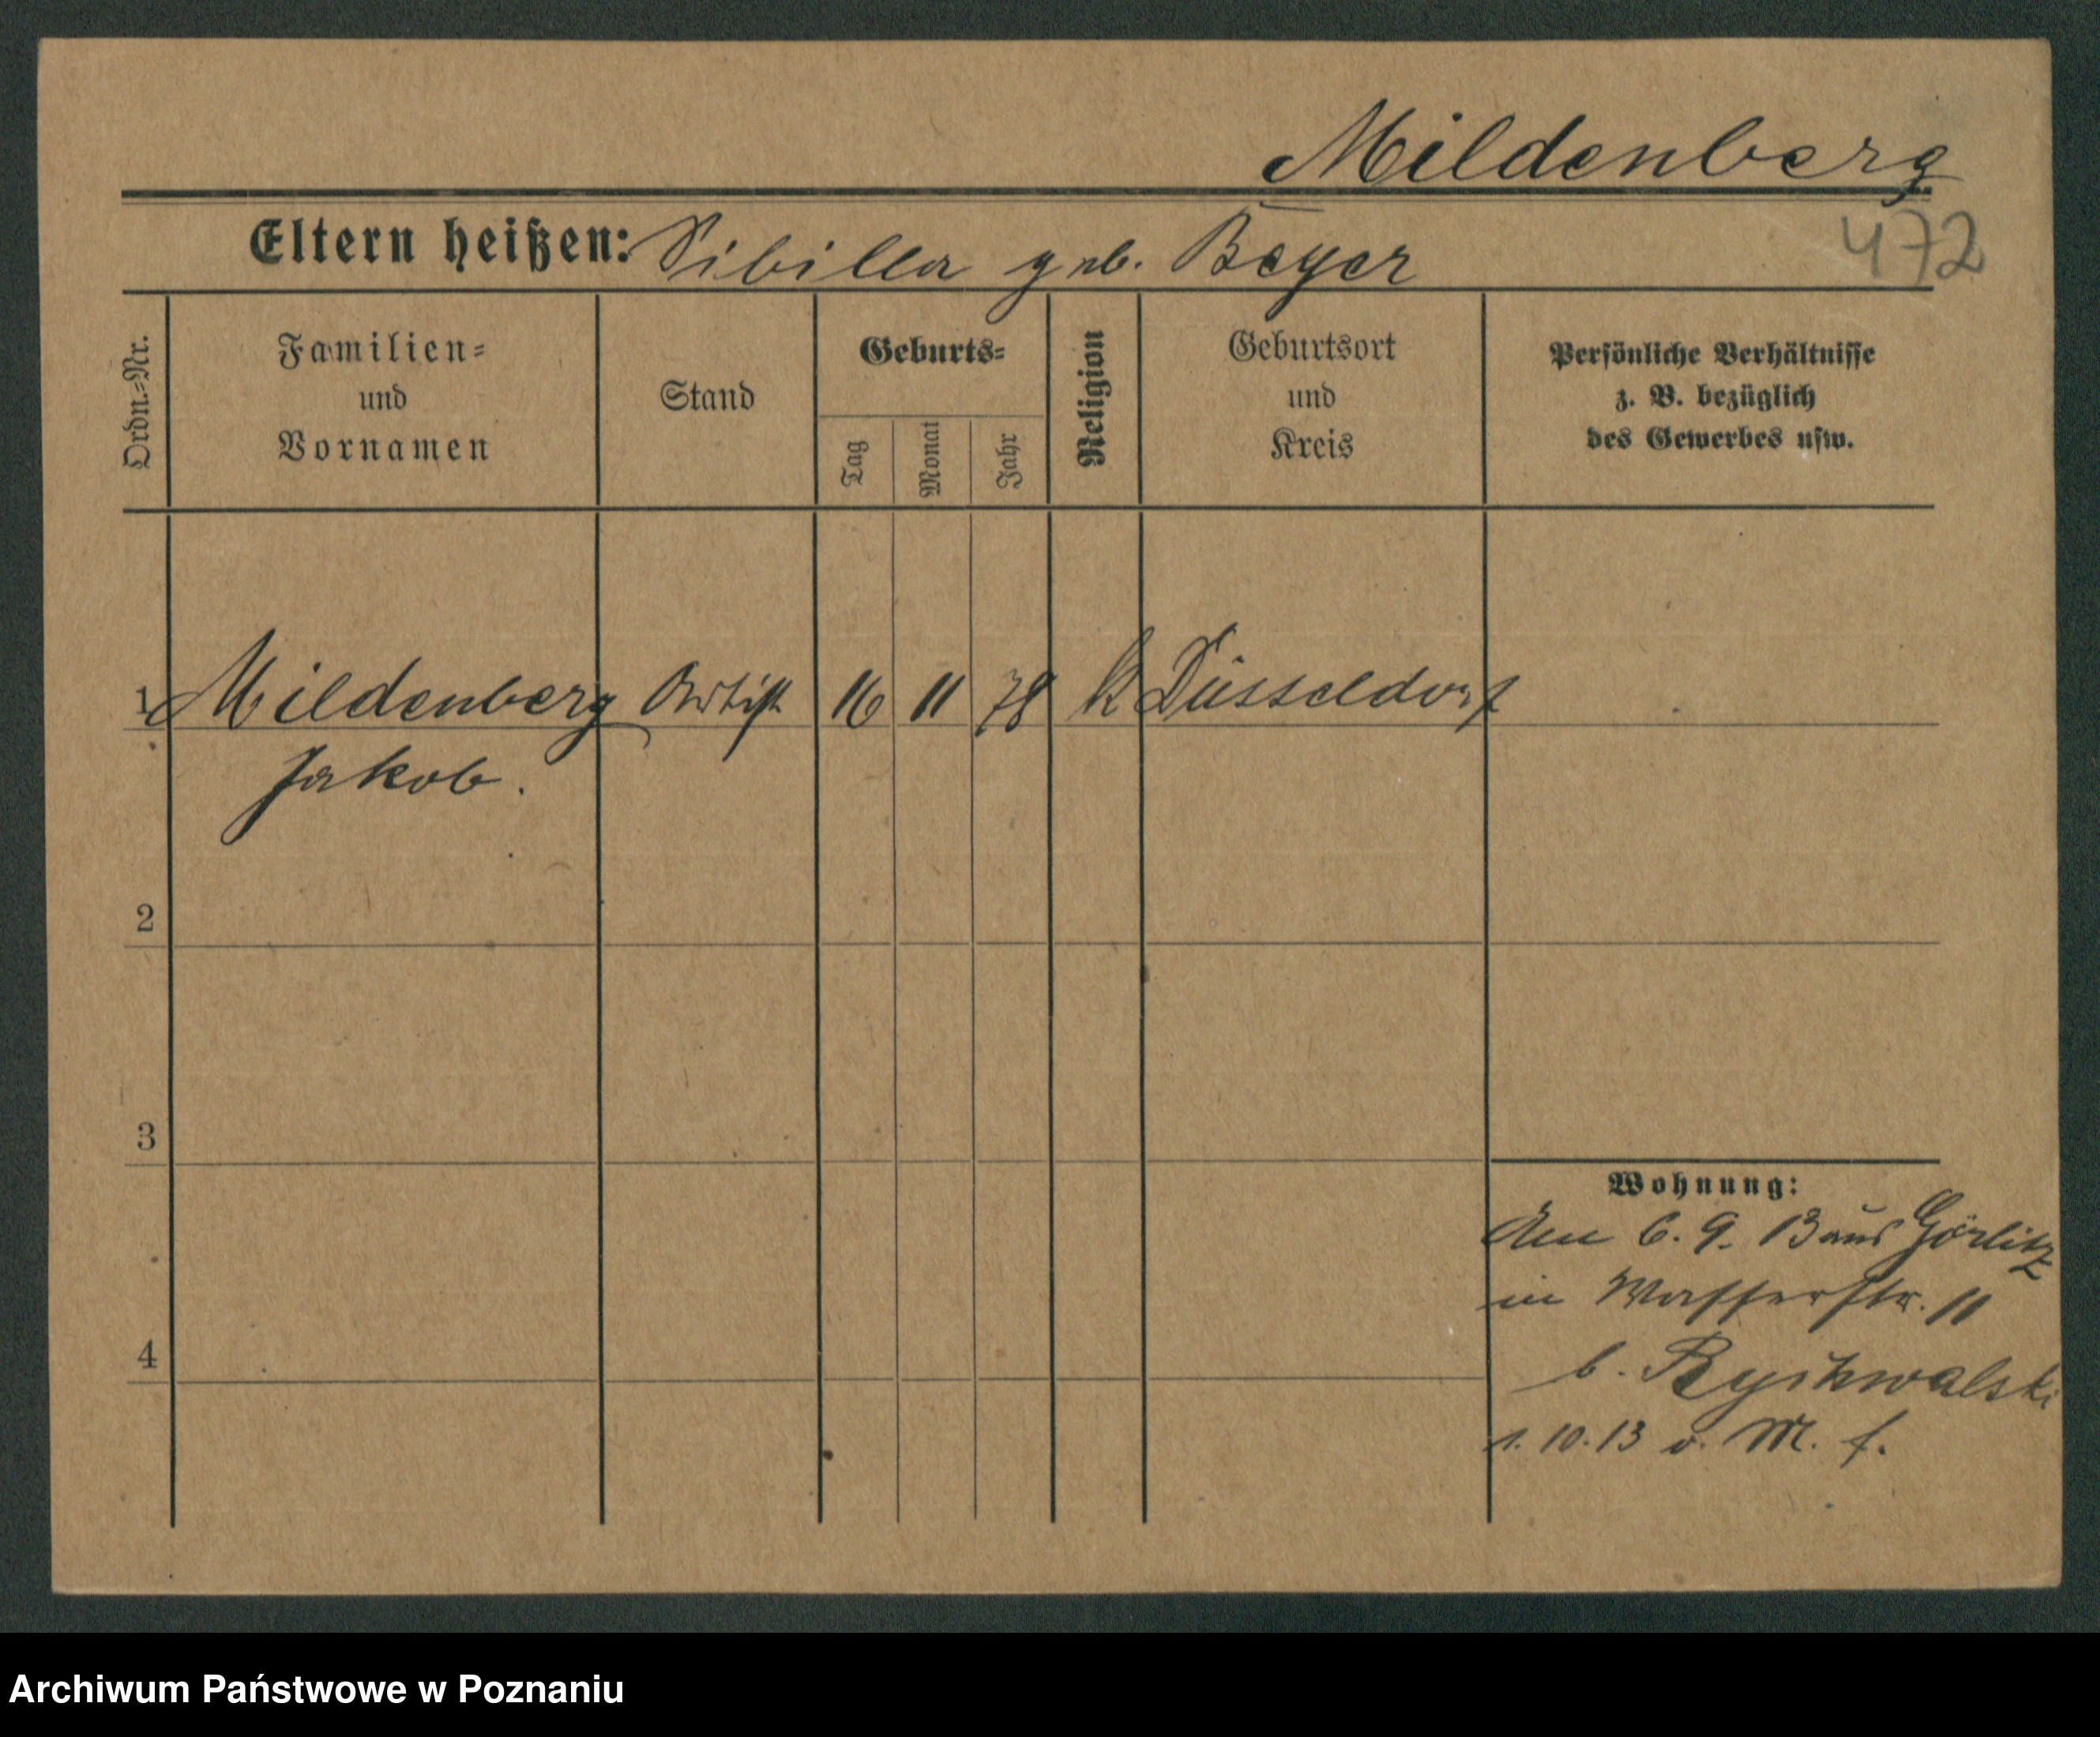 Mildenberg
Eltern heißen: Sibilla geb. Beyer
472
Ordn.-Nr.
Familien-
und
Vornamen
Stand
Geburts-
Tag
Monat
Jahr
Religion
Geburtsort
und
Kreis
Persönliche Verhältnisse
z. B. bezüglich
des Gewerbes usw.
1 Mildenberg Artist 16 11 78 k Düsseldorf
Jakob.
2
3
4
Wohnung:
Am 6. 9. 13 aus Görlitz
in Wasserstr. 11
b. Rychwalski
1. 10. 13 v. M. f.
Archiwum Państwowe w Poznaniu